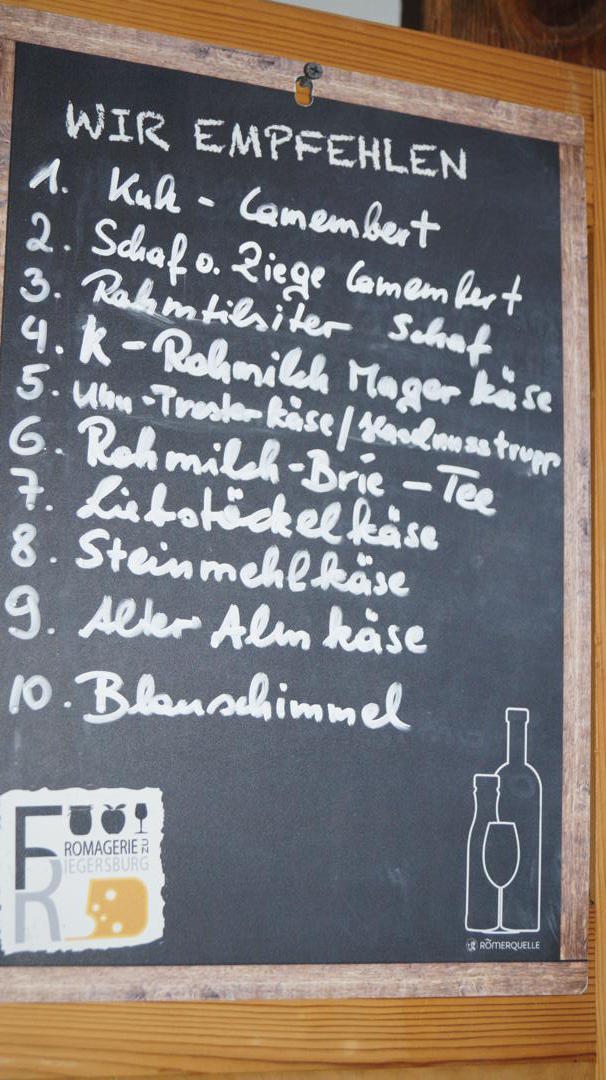 WIR EMPFEHLEN
1. Kuh - Camembert
2. Schaf o. Ziege Camembert
3. Rahmtilsiter Schaf
4. K - Rohmilch Mager käse
5. Uhu - Trester käse / Haselnusstrupp
6. Rohmilch - Brie - Tee
7. Liebstöckelkäse
8. Steinmehlkäse
9. Alter Alm käse
10. Blauschimmel
FROMAGERIE ZU
RIEGERSBURG
RÖMERQUELLE